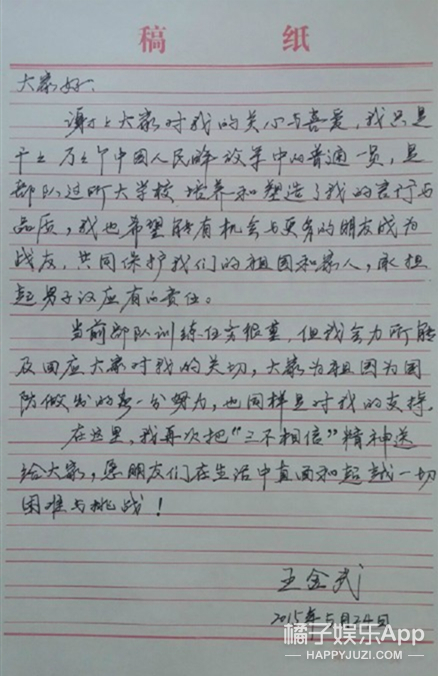 稿 纸
大家好：
谢谢大家对我的关心与喜爱，我只是
千千万万个中国人民解放军中的普通一员，是
部队这所大学校培养和塑造了我的言行与
品质，我也希望能有机会与更多的朋友成为
战友，共同保护我们的祖国和家人，承担
起男子汉应有的责任。
当前部队训练任务很重，但我会力所能
及回应大家对我的关切，大家为祖国为国
防做出的每一分努力，也同样是对我的支持。
在这里，我再次把“三不相信”精神送
给大家，愿朋友们在生活中直面和超越一切
困难与挑战！
王金武
2015年5月24日
橘子娱乐App
HAPPYJUZI.COM